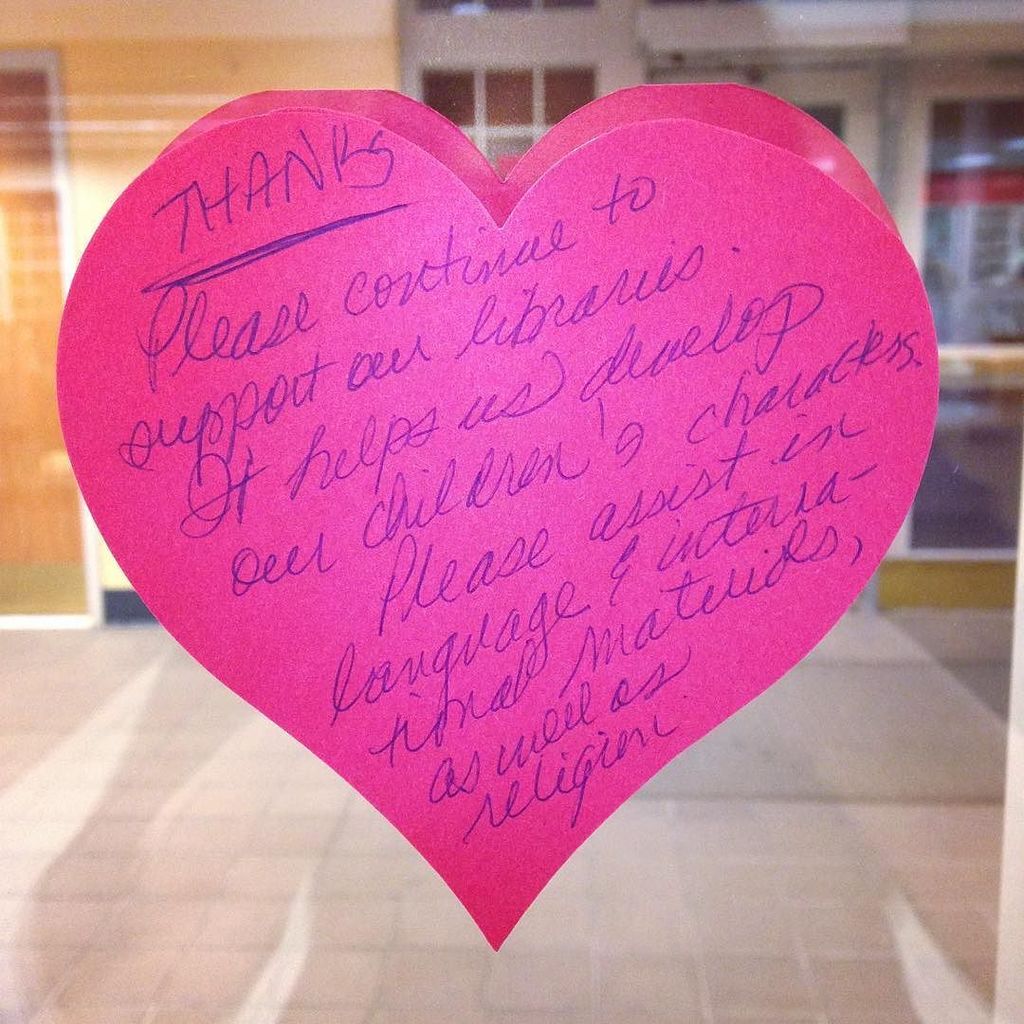 THANKS
Please continue to
support our libraries.
It helps us develop
our children's characters.
Please assist in
language & interna-
tional materials,
as well as
religion.